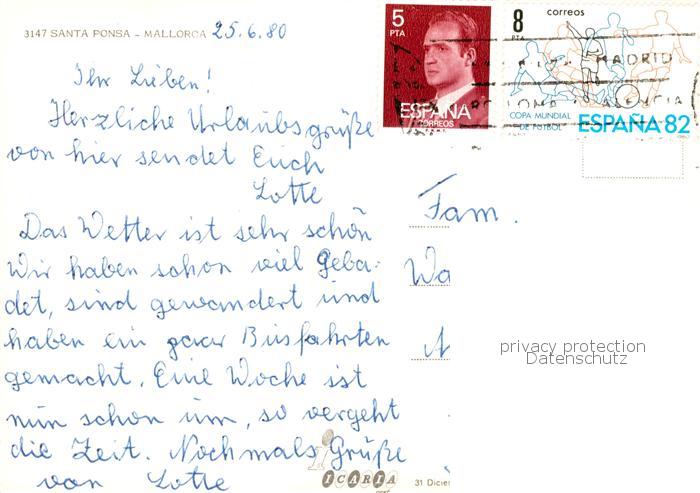 3147 SANTA PONSA - MALLORCA 25.6.80
Ihr Lieben!
Herzliche Urlaubsgrüße
von hier sendet Euch
Lotte
Das Wetter ist sehr schön
Wir haben schon viel geba-
det, sind gewandert und
haben ein paar Busfahrten
gemacht. Eine Woche ist
nun schon um, so vergeht
die Zeit. Nochmals Grüße
von Lotte
5
PTA
ESPAÑA
CORREOS
8
PTA
correos
COPA MUNDIAL
DE FUTBOL
ESPAÑA 82
MADRID
Fam.
Wa
privacy protection
Datenschutz
ICARIA
31 Dicie